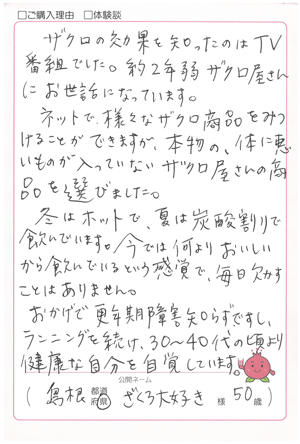 □ご購入理由 □体験談
ザクロの効果を知ったのはTV
番組でした。約2年弱ザクロ屋さん
にお世話になっています。
ネットで、様々なザクロ商品をみつ
けることができますが、本物の、体に悪
いものが入っていないザクロ屋さんの商
品を選びました。
冬はホットで、夏は炭酸割りで
飲んでいます。今では何よりおいしい
から飲んでいるという感覚で、毎日欠かす
ことはありません。
おかげで更年期障害知らずですし、
ランニングを続け、30〜40代の頃より
健康な自分を自覚しています。
公開ネーム
(島根 都道府県 ざくろ大好き 様 50歳)